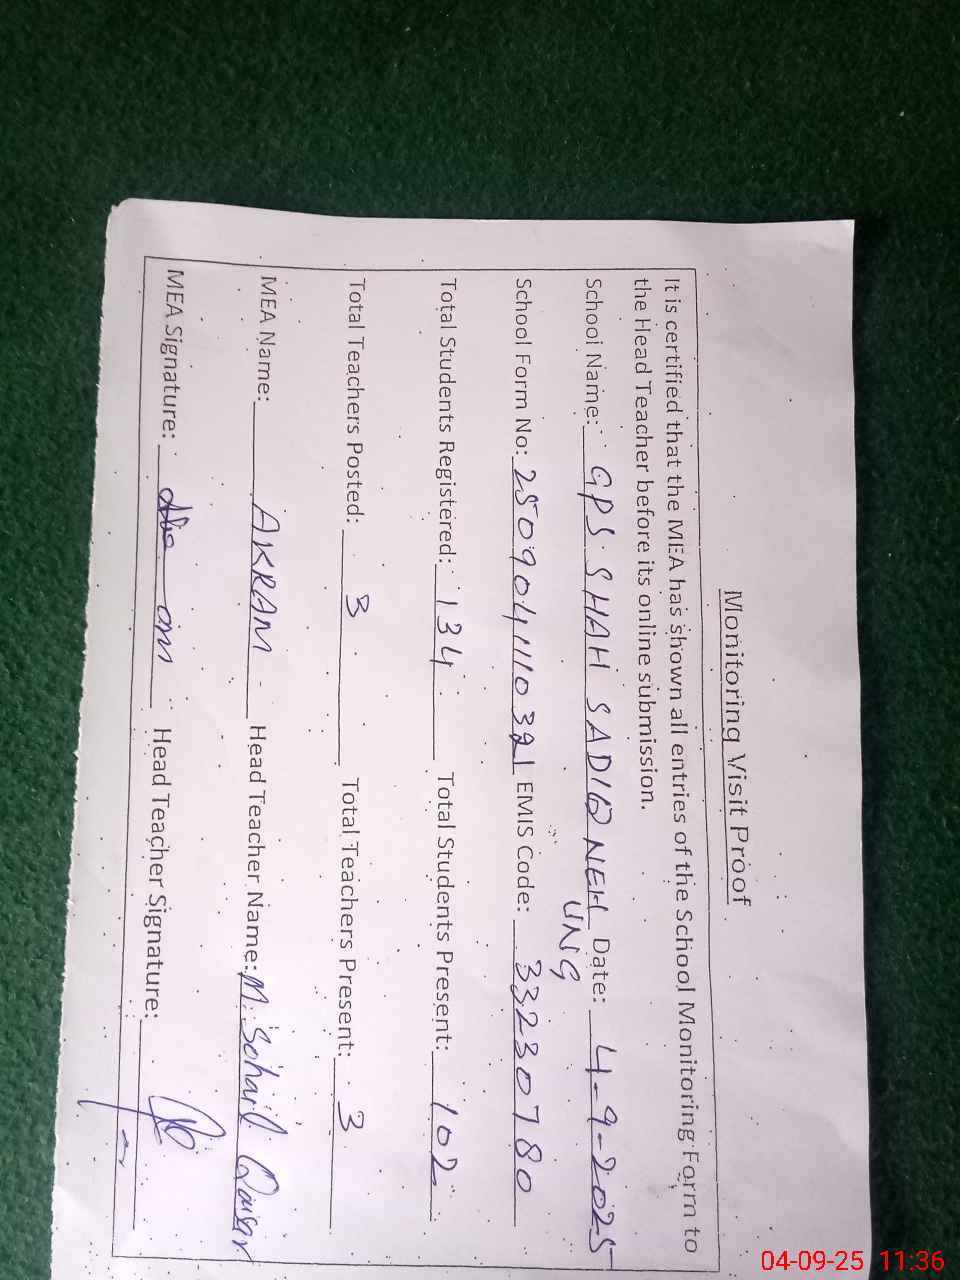 Monitoring Visit Proof
It is certified that the MEA has shown all entries of the School Monitoring Form to
the Head Teacher before its online submission.
School Name: GPS SHAH SADIQ NEH Date: 4-9-2025
UNG
School Form No: EMIS Code: 33230780
Total Students Registered: 134 Total Students Present: 102
Total Teachers Posted: 3 Total Teachers Present: 3
MEA Name: AKRAM Head Teacher Name: M. Sohail Qaisar
MEA Signature: Head Teacher Signature:
04-09-25 11:36